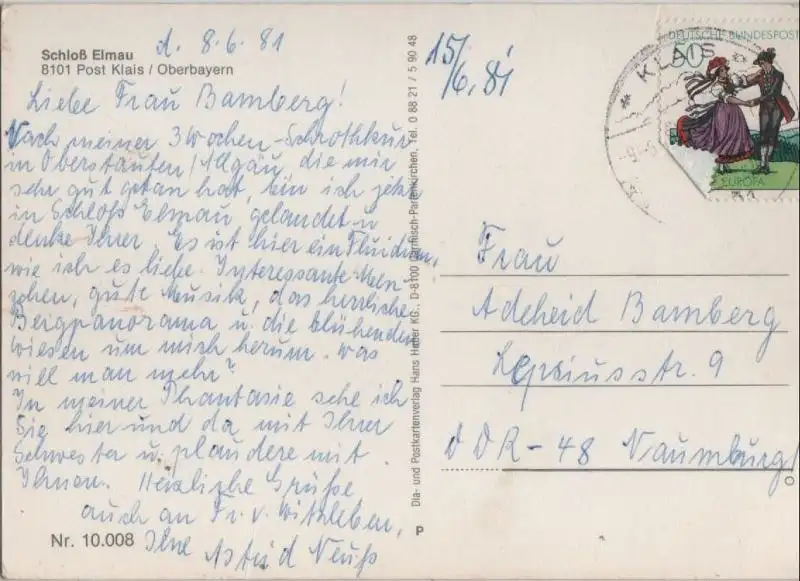 Schloß Elmau d. 8.6.81
8101 Post Klais / Oberbayern
Liebe Frau Bamberg!
Nach meiner 3 Wochen-Schrothkur
in Oberstaufen/Allgäu, die mir
sehr gut getan hat, bin ich jetzt
in Schloß Elmau gelandet u.
denke Ihrer. Es ist hier ein Fluidum,
wie ich es liebe. Interessante Men-
schen, gute Musik, das herrliche
Bergpanorama u. die blühenden
Wiesen um mich herum. Was
will man mehr?
In meiner Phantasie sehe ich
Sie hier und da mit Ihrer
Schwester u. plaudere mit
Ihnen. Herzliche Grüße
auch an Fr. v. Witzleben,
Ihre Astrid Neuß
Nr. 10.008
Dia- und Postkartenverlag Hans Huber KG., D-8100 Garmisch-Partenkirchen, Tel. 0 88 21 / 5 90 48
P
15/
/6.81
KLAIS
DEUTSCHE BUNDESPOST
50
EUROPA
Frau
Adelheid Bamberg
Lepsiusstr. 9
DDR-48 Naumburg/